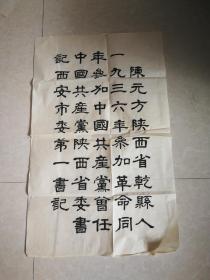 陳元方陝西省乾縣人
一九三六年参加革命同
年参加中國共産黨曾任
中國共産黨陝西省委書
記西安市委第一書記